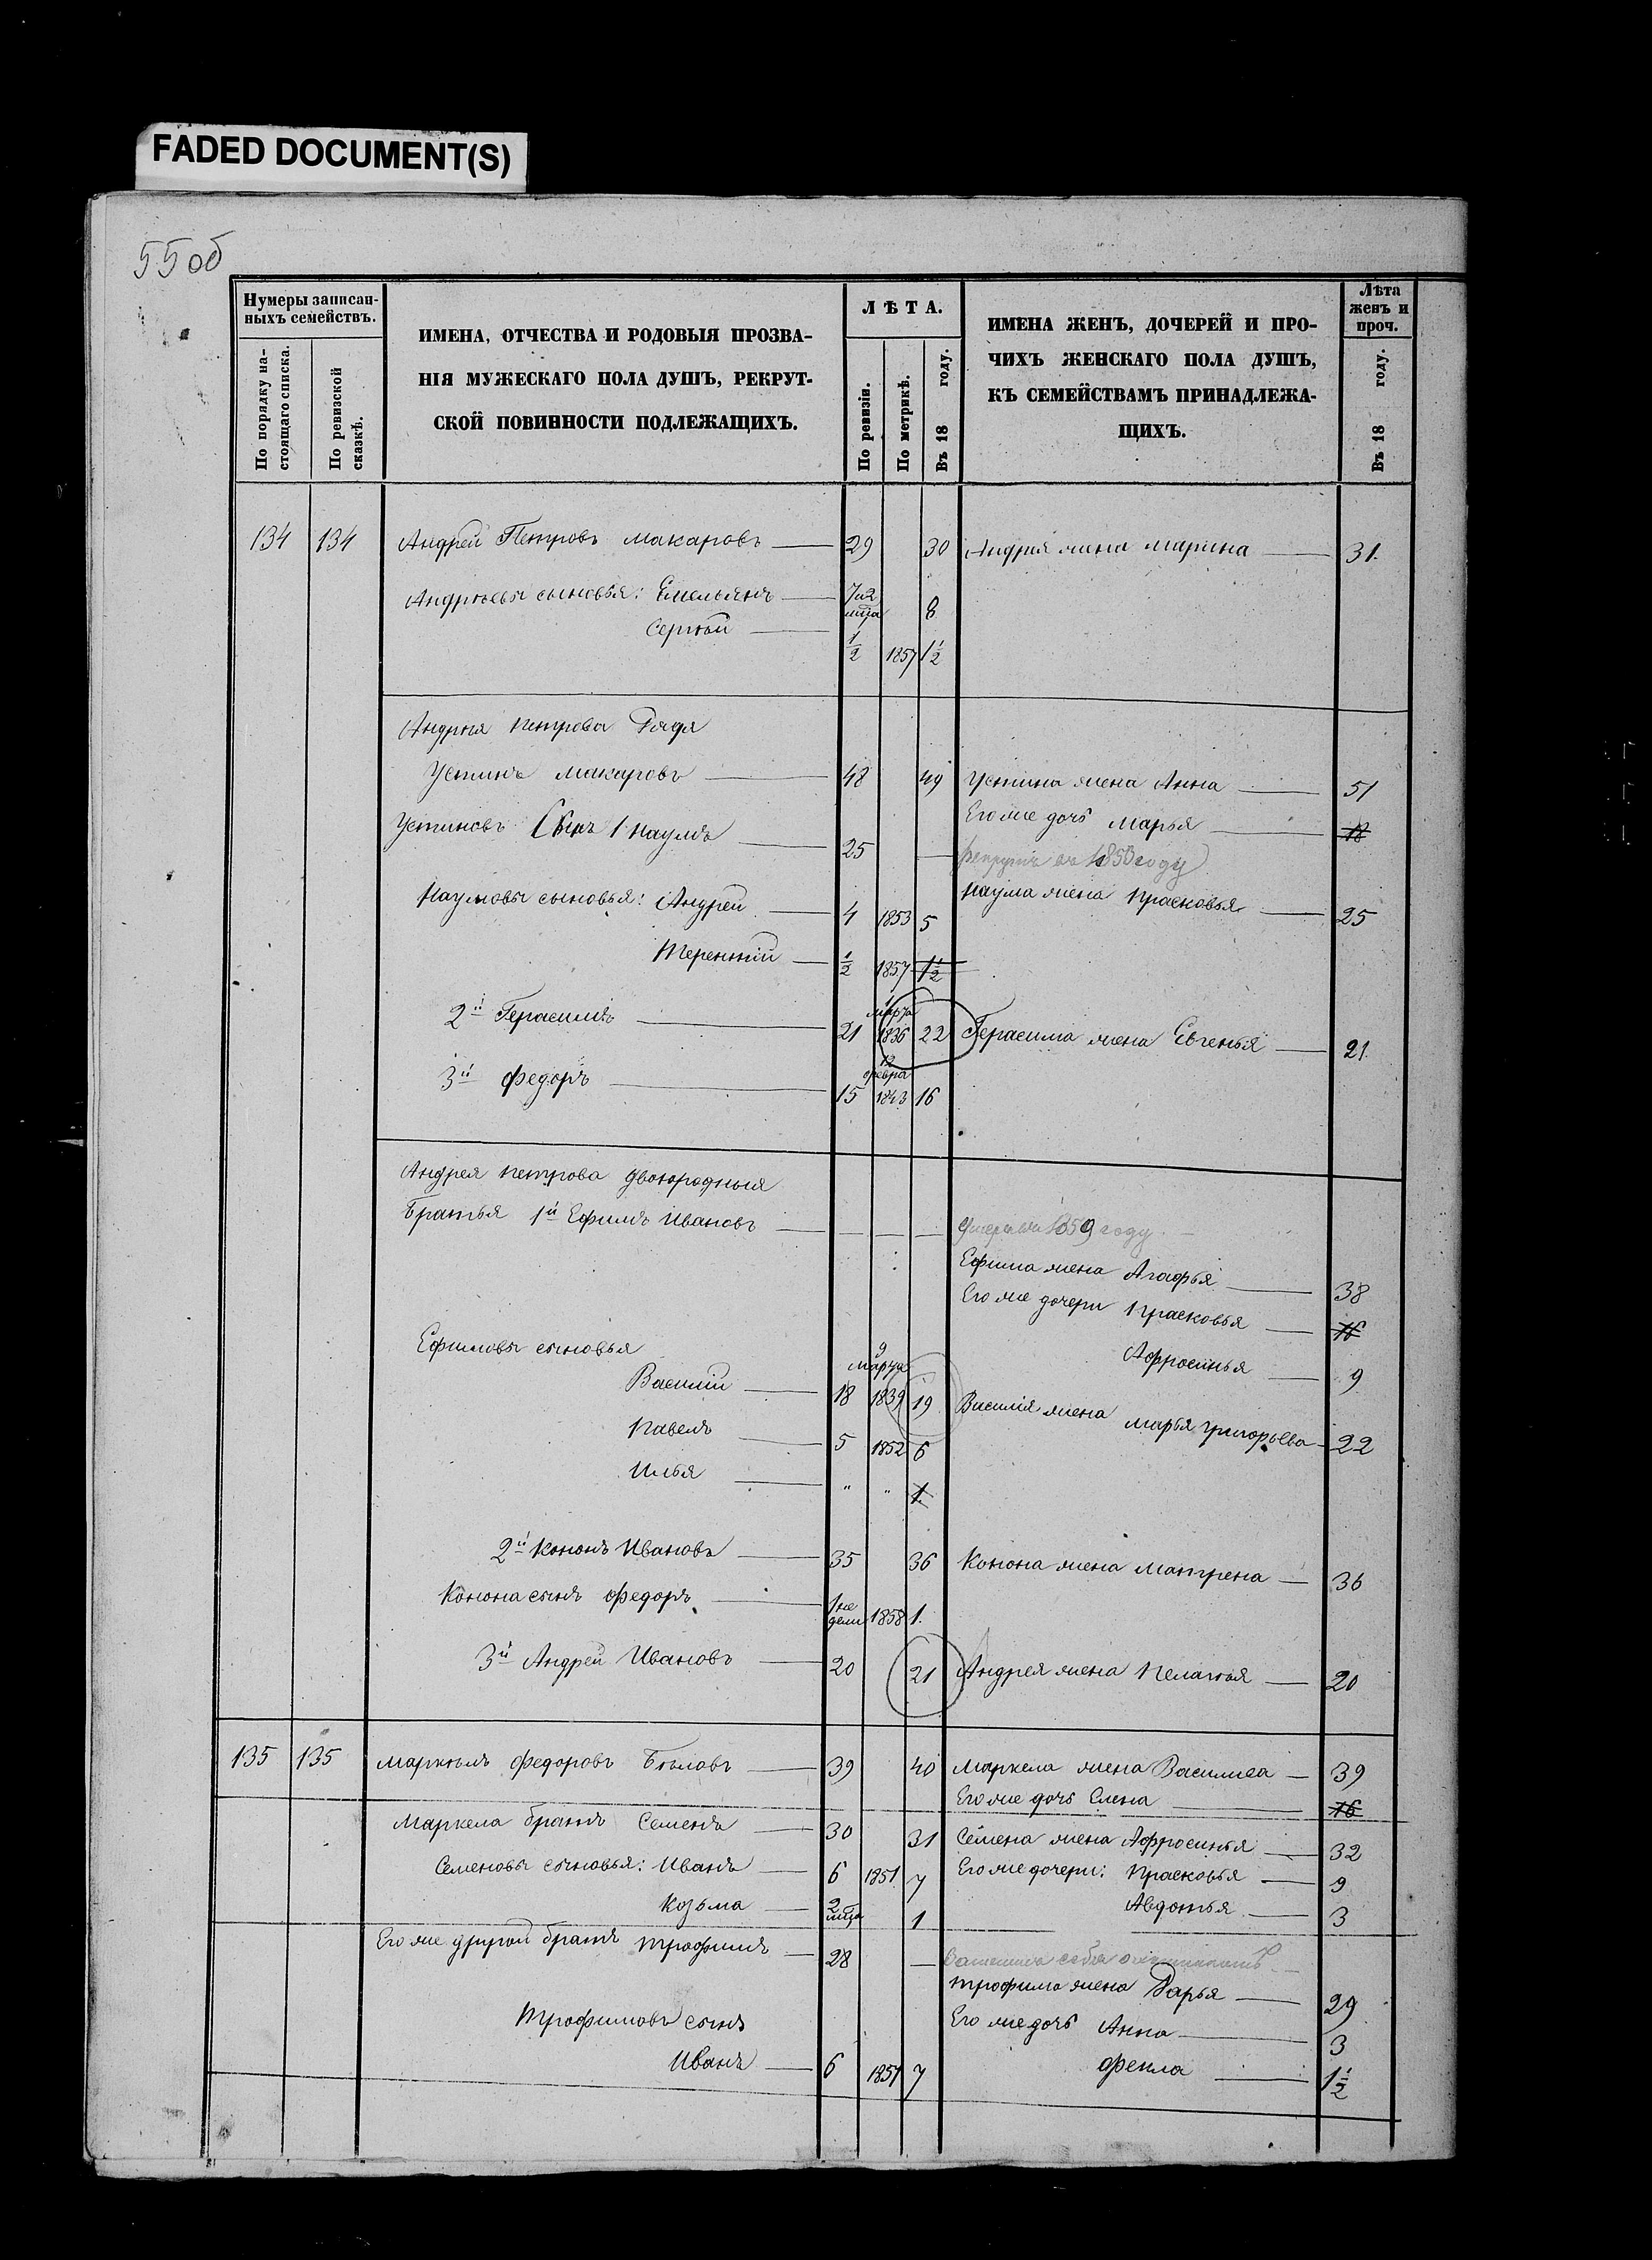 FADED DOCUMENT(S)
55 об
Нумеры записан-
ныхъ семействъ.
По порядку на-
стоящаго списка.
По ревизской
сказкѣ.
ИМЕНА, ОТЧЕСТВА И РОДОВЫЯ ПРОЗВА-
НІЯ МУЖЕСКАГО ПОЛА ДУШЪ, РЕКРУТ-
СКОЙ ПОВИННОСТИ ПОДЛЕЖАЩИХЪ.
ЛѢТА.
По ревизіи.
По метрикѣ.
Въ 18 году.
ИМЕНА ЖЕНЪ, ДОЧЕРЕЙ И ПРО-
ЧИХЪ ЖЕНСКАГО ПОЛА ДУШЪ,
КЪ СЕМЕЙСТВАМЪ ПРИНАДЛЕЖА-
ЩИХЪ.
Лѣта
женъ и
проч.
Въ 18 году.
134 134 Андрей Петровъ Макаровъ 29 30 Андрея жена Марина 31.
Андрѣевы сыновья: Емельянъ 7 и 2 мца 8
Сергѣй 1/2 1857 1 1/2
Андрея Петрова Дядя
Устинъ Макаровъ 48 49 Устина жена Анна 51
Его же дочь Марья 18
Устиновъ Сынъ 1 Наумъ 25 — рекрутъ въ 1858 году
Наума жена Прасковья 25
Наумовы сыновья: Андрей 4 1853 5
Терентий 1/2 1857 1 1/2
2й Герасимъ 21 1 Марта 1836 22 Герасима жена Евгенья 21.
3й Федоръ 15 12 февра 1843 16
Андрея Петрова двоюродныя
Братья 1й Ефимъ Ивановъ — — — Умеръ въ 1859 году.
Ефима жена Агафья 38
Его же дочери Прасковья 16
Афросинья 9
Ефимовы сыновья
Василий 18 9 Марта 1839 19 Василія жена Марья Григорьева 22
Павелъ 5 1852 6
Илья " " 1.
2й Кононъ Ивановъ 35 36 Конона жена Матрена 36
Конона сынъ Федоръ 1 не дели 1858 1.
3й Андрей Ивановъ 20 21 Андрея жена Пелагья 20
135 135 Маркелъ Федоровъ Бѣловъ 39 40 Маркела жена Василиса 39
Его же дочь Елена 16
Маркела братъ Семенъ 30 31 Семена жена Афросинья 32
Семеновы сыновья: Иванъ 6 1851 7 Его же дочери: Прасковья 9
Козьма 2 мца 1 Авдотья 3
Его же другой братъ Трофимъ 28 —
Трофима жена Дарья 29
Трофимовъ сынъ Его же дочь Анна 3
Иванъ 6 1851 7 Фекла 1 1/2